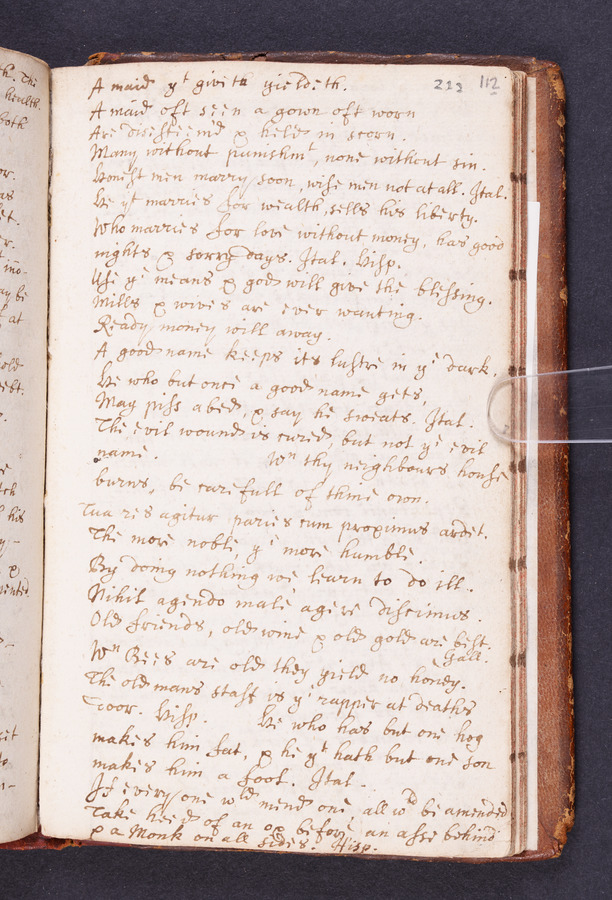 213 112
A maid yt giveth yieldeth.
A maid oft seen a gown oft worn
Are disesteem'd & held in scorn.
Many without punishmt, none without sin.
Honest men marry soon, wise men not at all. Ital.
He yt marries for wealth, sells his liberty.
Who marries for love without money, has good
nights & sorry days. Ital. Hisp.
Use ye means & god will give the blessing.
Mills & wives are ever wanting.
Ready money will away.
A good name keeps its lustre in ye dark.
He who but once a good name gets,
May piss abed, & say he sweats. Ital.
The evil wound is cured, but not ye evil
name. Wn thy neighbours house
burns, be carefull of thine own.
Tua res agitur paries cum proximus ardet.
The more noble, ye more humble.
By doing nothing we learn to do ill.
Nihil agendo male agere discimus.
Old friends, old wine & old gold are best.
Gall.
Wn Bees are old they yield no honey.
The old mans staff is ye rapper at deaths
door. Hisp. He who has but one hog
makes him fat, & he yt hath but one son
makes him a fool. Ital.
If every one wld mend one, all wd be amended
Take heed of an ox before, an asse behind
& a Monk on all sides. Hisp.